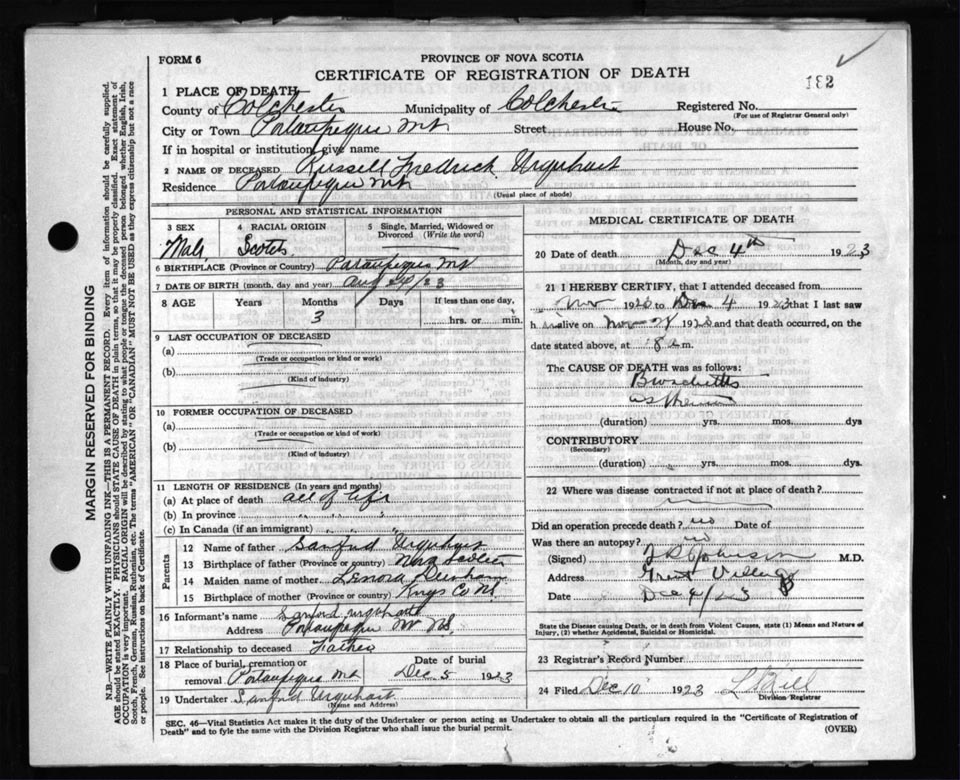 FORM 6
PROVINCE OF NOVA SCOTIA
CERTIFICATE OF REGISTRATION OF DEATH
182
1 PLACE OF DEATH
County of Colchester Municipality of Colchester Registered No.
(For use of Registrar General only)
City or Town Portaupique Mt Street House No.
If in hospital or institution, give name
2 NAME OF DECEASED Russell Fredrick Urquhart
Residence Portaupique Mt
(Usual place of abode)
PERSONAL AND STATISTICAL INFORMATION
3 SEX 4 RACIAL ORIGIN 5 Single, Married, Widowed or Divorced (Write the word)
Male Scotch
6 BIRTHPLACE (Province or Country) Portaupique Mt
7 DATE OF BIRTH (month, day and year) Aug 24/23
8 AGE Years Months Days If less than one day,
3 hrs. or min.
9 LAST OCCUPATION OF DECEASED
(a)
(Trade or occupation or kind or work)
(b)
(Kind of industry)
10 FORMER OCCUPATION OF DECEASED
(a)
(Trade or occupation or kind of work)
(b)
(Kind of industry)
11 LENGTH OF RESIDENCE (In years and months)
(a) At place of death all of life
(b) In province " " "
(c) In Canada (if an immigrant) " " "
Parents
12 Name of father Sanford Urquhart
13 Birthplace of father (Province or country) Nova Scotia
14 Maiden name of mother Lenora
15 Birthplace of mother (Province or country) Kings Co
16 Informant's name Sanford Urquhart
Address Portaupique Mt NS
17 Relationship to deceased Father
18 Place of burial, cremation or removal Portaupique Mt Date of burial Dec 5 1923
19 Undertaker Sanford Urquhart
(Name and Address)
MEDICAL CERTIFICATE OF DEATH
20 Date of death Dec 4th 1923
(Month, day and year)
21 I HEREBY CERTIFY, that I attended deceased from
Nov 1923 to Dec 4 1923 that I last saw
h im alive on Nov 1923 and that death occurred, on the
date stated above, at 8 a m.
The CAUSE OF DEATH was as follows:
Bronchitis
(duration) yrs. mos. dys
CONTRIBUTORY
(Secondary)
(duration) yrs. mos. dys.
22 Where was disease contracted if not at place of death?
Did an operation precede death? no Date of
Was there an autopsy? no
(Signed) Johnson M.D.
Address Great Village
Date Dec 4/23
State the Disease causing Death, or in death from Violent Causes, state (1) Means and Nature of
Injury, (2) whether Accidental, Suicidal or Homicidal.
23 Registrar's Record Number
24 Filed Dec 10 1923 L Hill
Division Registrar
SEC. 46—Vital Statistics Act makes it the duty of the Undertaker or person acting as Undertaker to obtain all the particulars required in the "Certificate of Registration of
Death" and to fyle the same with the Division Registrar who shall issue the burial permit. (OVER)
MARGIN RESERVED FOR BINDING
N.B.—WRITE PLAINLY WITH UNFADING INK—THIS IS A PERMANENT RECORD. Every item of information should be carefully supplied.
AGE should be stated EXACTLY. PHYSICIANS should STATE CAUSE OF DEATH in plain terms, so that it may be properly classified. Exact statement of
OCCUPATION is very important. RACIAL ORIGIN will be described by stating to what people or tongue the deceased person belonged whether English, Irish,
Scotch, French, German, Russian, Ruthenian, etc. The terms "AMERICAN" OR "CANADIAN" MUST NOT BE USED as they express citizenship but not a race
or people. See instructions on back of Certificate.